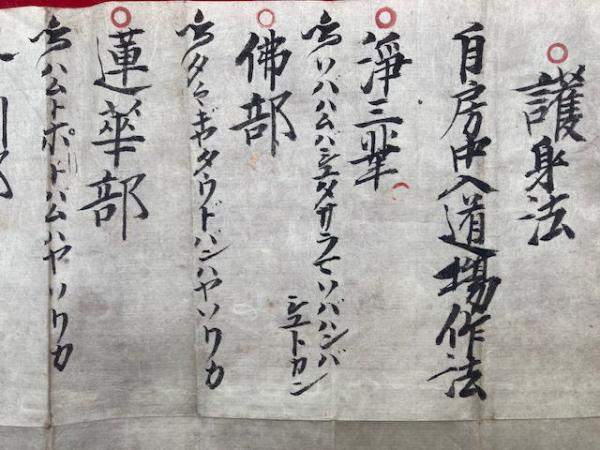 護身法
自房中入道場作法
淨三業
唵ソバハムバシユダサラてソバハンバ
シユトカン
佛部
唵タヽギヤタウドバンハヤソワカ
蓮華部
唵ハムトボドハムハヤソワカ